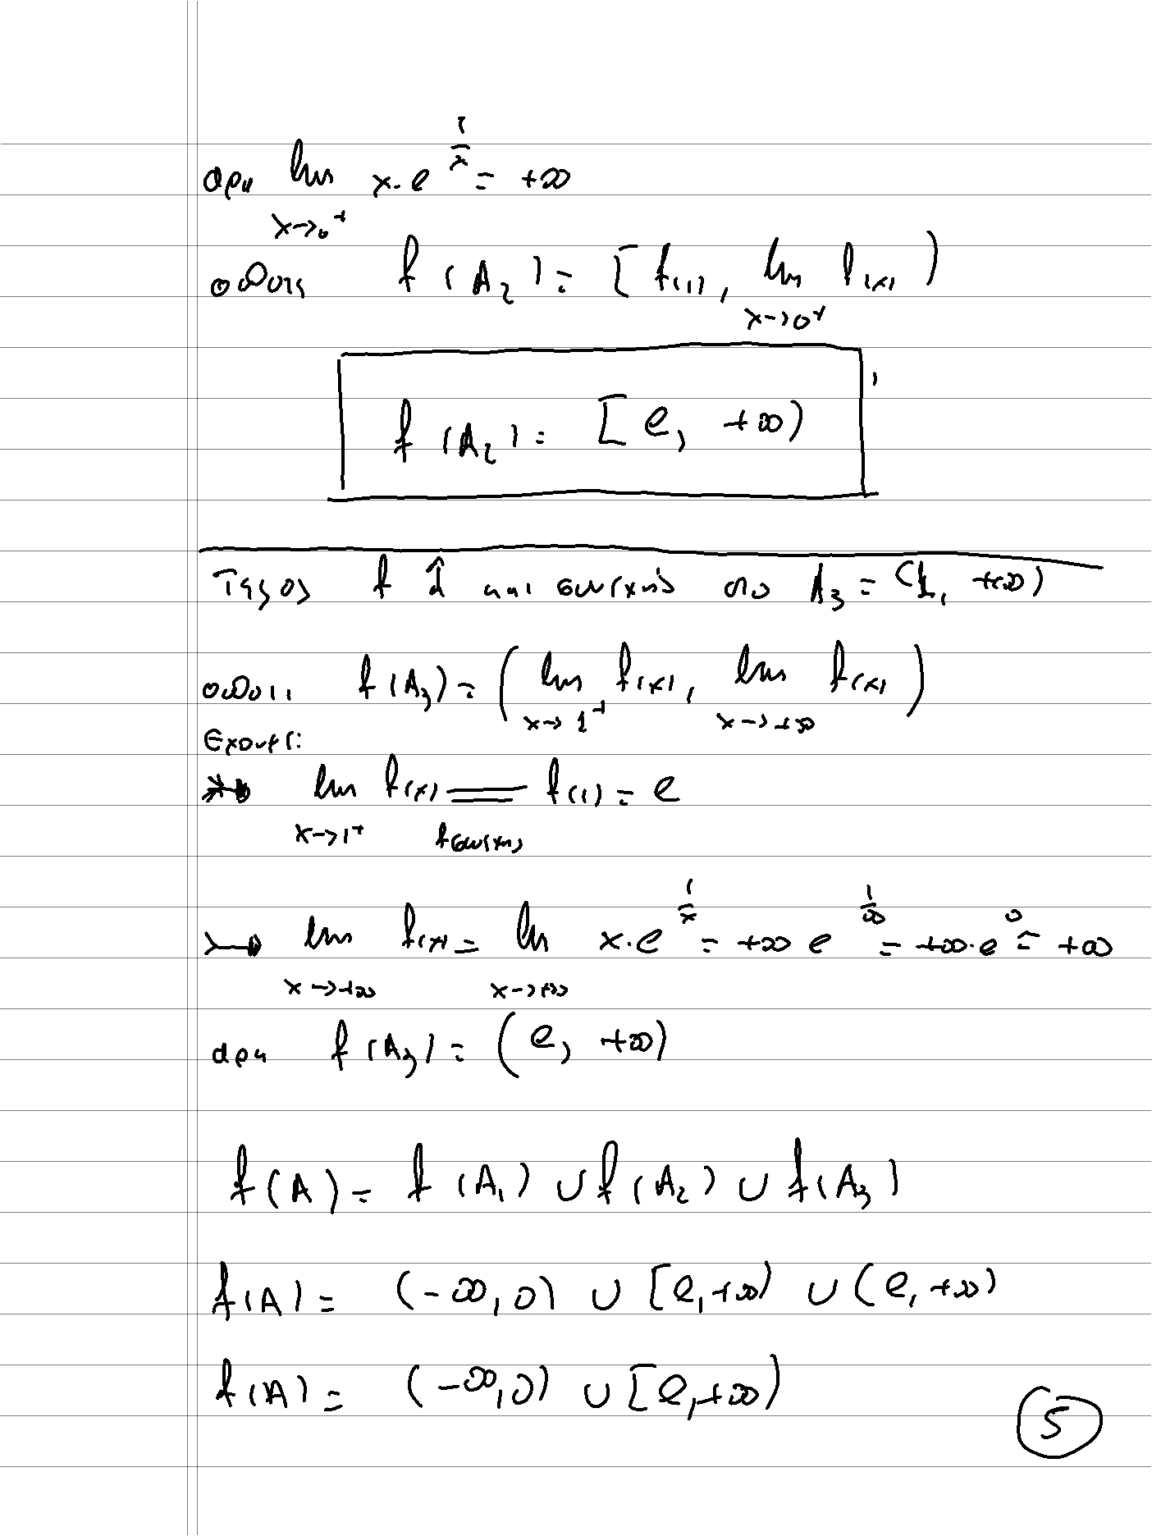 άρα lim x·e^{1/x} = +∞
x→0⁺
οπότε f(A₂) = [f(1), lim f(x))
x→0⁺
f(A₂) = [e, +∞)
Τέλος f ↑ και συνεχής στο A₃ = (1, +∞)
οπότε f(A₃) = (lim f(x), lim f(x))
x→1⁺ x→+∞
Έχουμε:
lim f(x) = f(1) = e
x→1⁺ f συνεχής
→ lim f(x) = lim x·e^{1/x} = +∞ e^{1/∞} = +∞·e^0 = +∞
x→+∞ x→+∞
άρα f(A₃) = (e, +∞)
f(A) = f(A₁) ∪ f(A₂) ∪ f(A₃)
f(A) = (-∞,0) ∪ [e,+∞) ∪ (e,+∞)
f(A) = (-∞,0) ∪ [e,+∞)
5